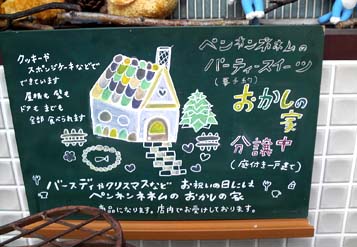 クッキーや
スポンジケーキなどで
できています
屋根も 壁も
ドア も まども
全部 食べられます
ペンネンネネムの
パーティースイーツ
(菓子の)
おかしの
家
分譲中
(庭付き一戸建て)
バースディやクリスマスなど お祝いの日には
ペンネンネネムの おかしの家
商品になります。店内でお受けしております。